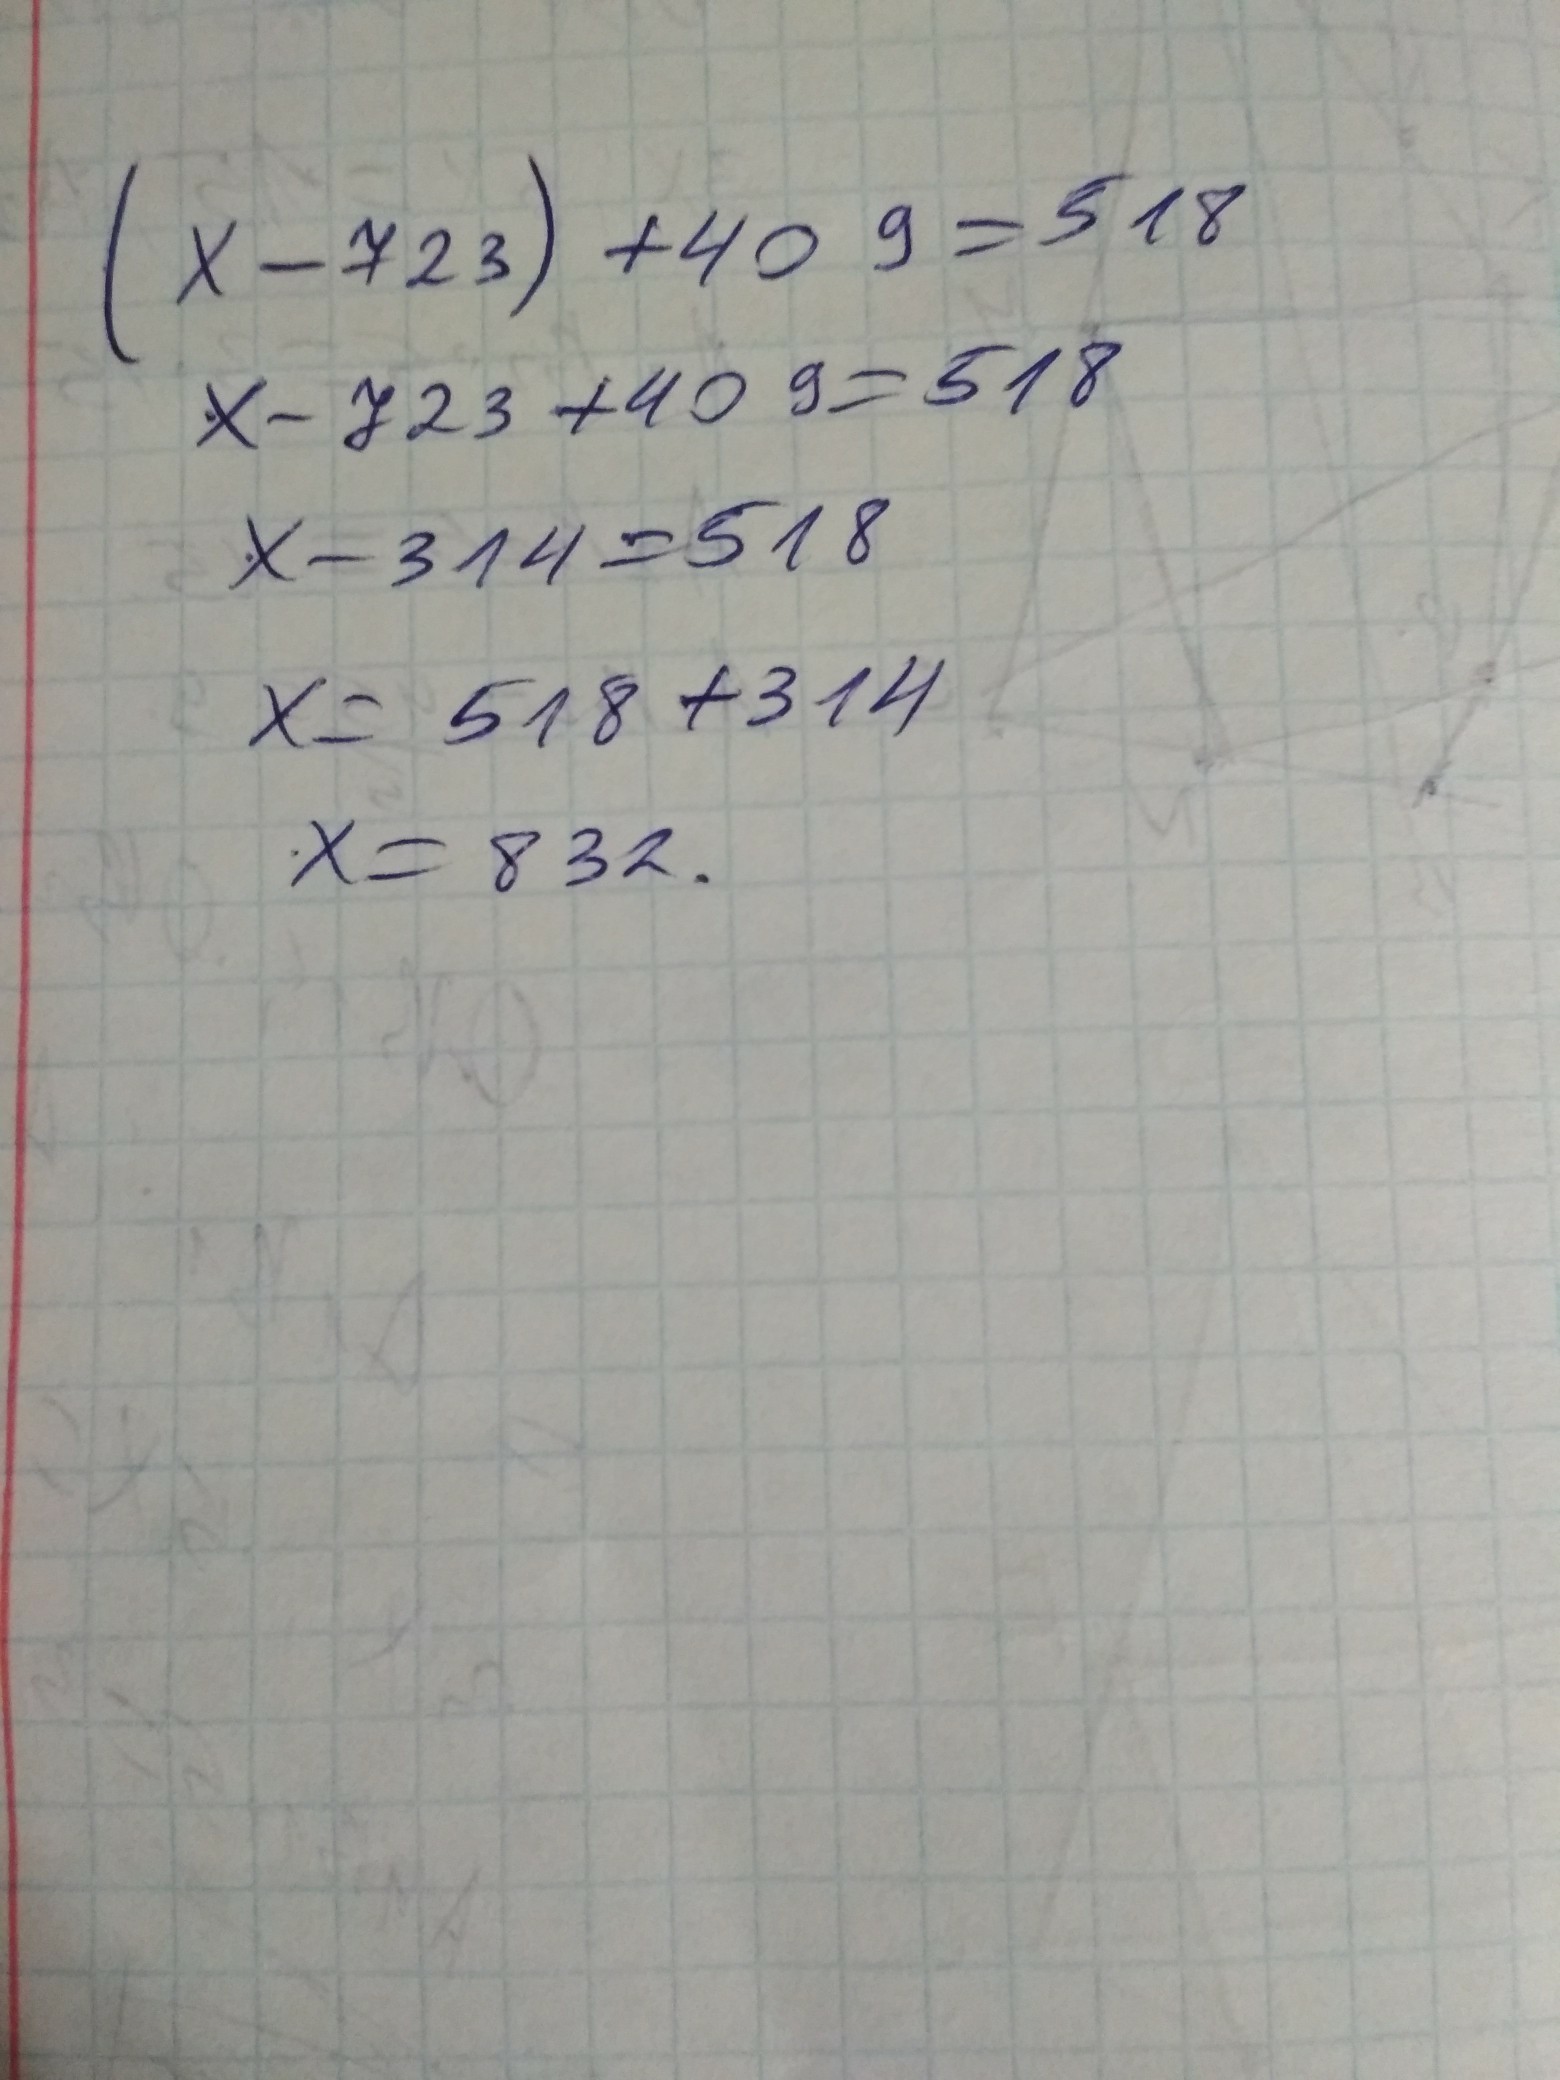 (x-723)+409=518
x-723+409=518
x-314=518
x=518+314
x=832.